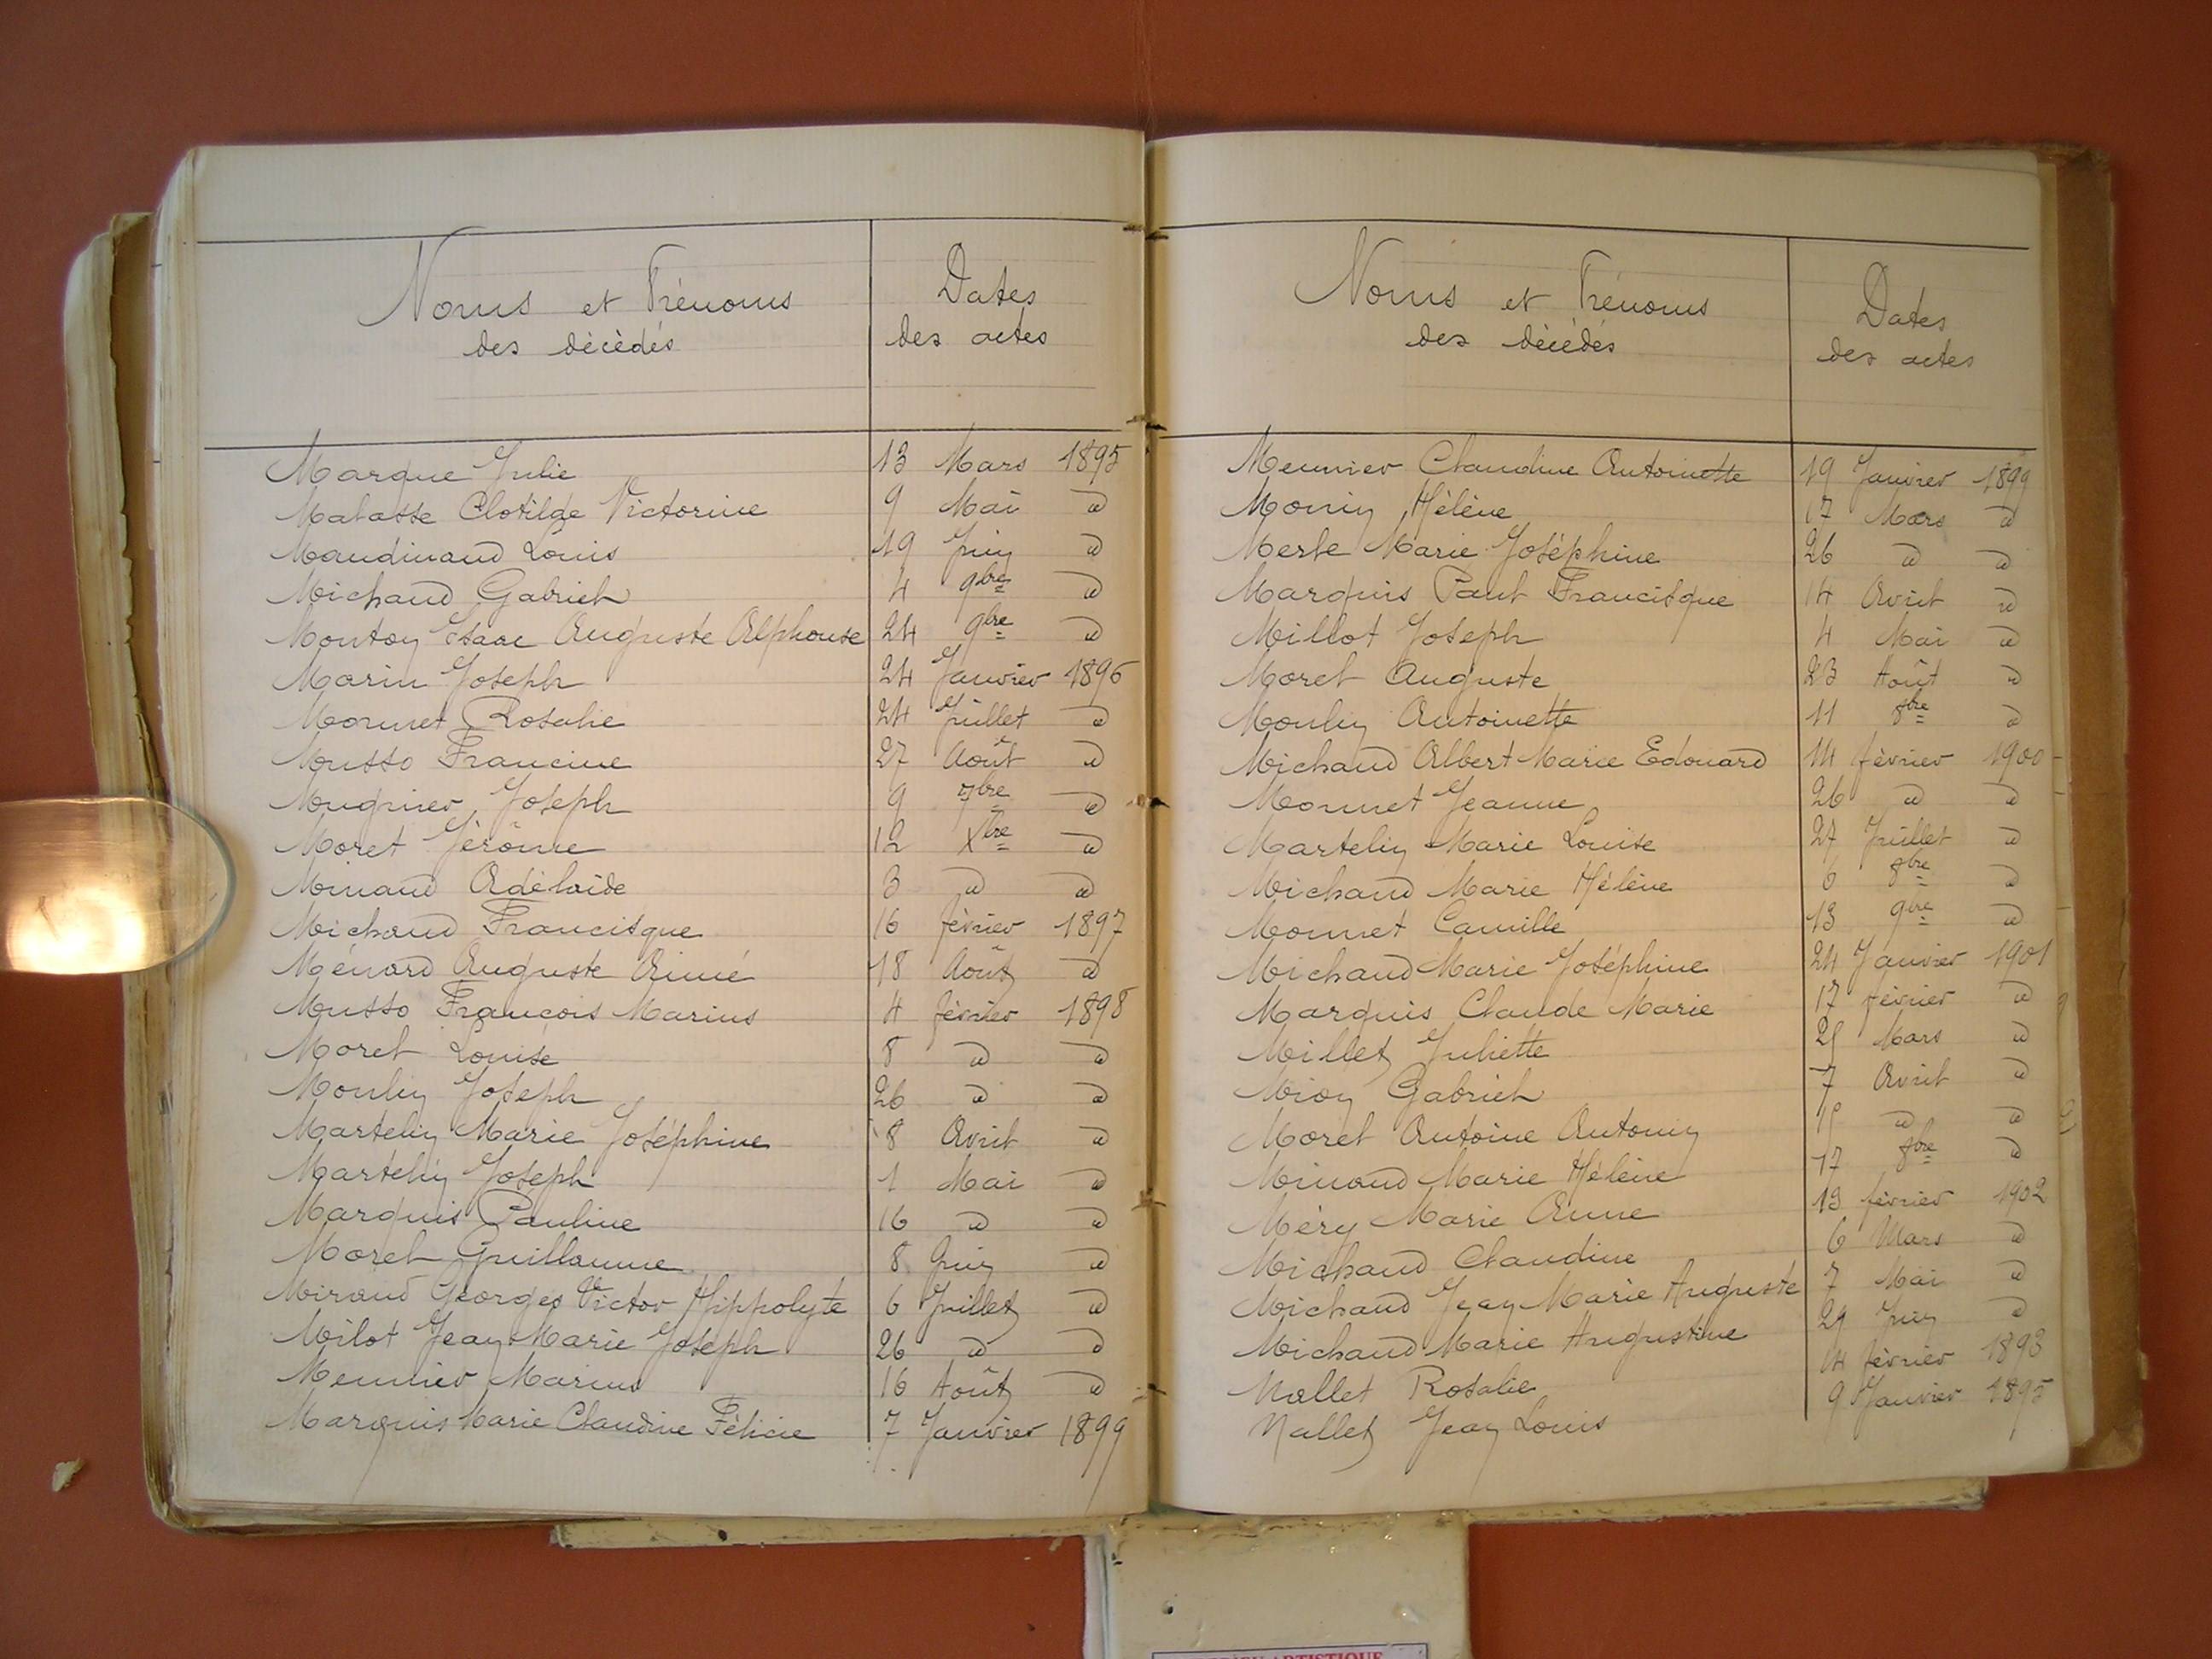 Noms et Prénoms
des décédés
Dates
des actes
Marque Julie 13 Mars 1895
Malasse Clotilde Victorine 9 Mai d
Maudinaud Louis 19 Juin d
Michaud Gabriel 4 9bre d
Monton Isaac Auguste Alphonse 24 9bre d
Marin Joseph 24 Janvier 1896
Monnet Rosalie 24 Juillet d
Musso Francine 27 Août d
Mugnier Joseph 9 7bre d
Moret Jérôme 12 Xbre d
Minaud Adélaïde 3 d d
Michaud Francisque 16 février 1897
Ménard Auguste Aimé 18 Août d
Musso François Marius 4 février 1898
Morel Louise 8 d d
Moulin Joseph 26 d d
Martelin Marie Joséphine 8 Avril d
Martelin Joseph 1 Mai d
Marquis Pauline 16 d d
Morel Guillaume 8 Juin d
Miraud Georges Victor Hippolyte 6 Juillet d
Milot Jean Marie Joseph 26 d d
Meunier Marius 16 Août d
Marquis Marie Claudine Félicie 7 Janvier 1899
Noms et Prénoms
des décédés
Dates
des actes
Meunier Claudine Antoinette 19 Janvier 1899
Monin Hélène 17 Mars d
Merle Marie Joséphine 26 d d
Marquis Paul Francisque 14 Avril d
Millot Joseph 4 Mai d
Morel Auguste 23 Août d
Moulin Antoinette 11 8bre d
Michaud Albert Marie Edouard 14 février 1900
Monnet Jeanne 26 d d
Martelin Marie Louise 27 Juillet d
Michaud Marie Hélène 6 8bre d
Monnet Camille 13 9bre d
Michaud Marie Joséphine 24 Janvier 1901
Marquis Claude Marie 17 février d
Millet Juliette Mars d
Mion Gabriel 7 Avril d
Morel Antoine Antonin d d
Minaud Marie Hélène 17 8bre d
Méry Marie Anne 13 février 1902
Michaud Claudine 6 Mars d
Michaud Jean Marie Auguste 7 Mai d
Michaud Marie Augustine 29 Juin d
Nallet Rosalie 14 février 1893
Nallet Jean Louis 9 Janvier 1895